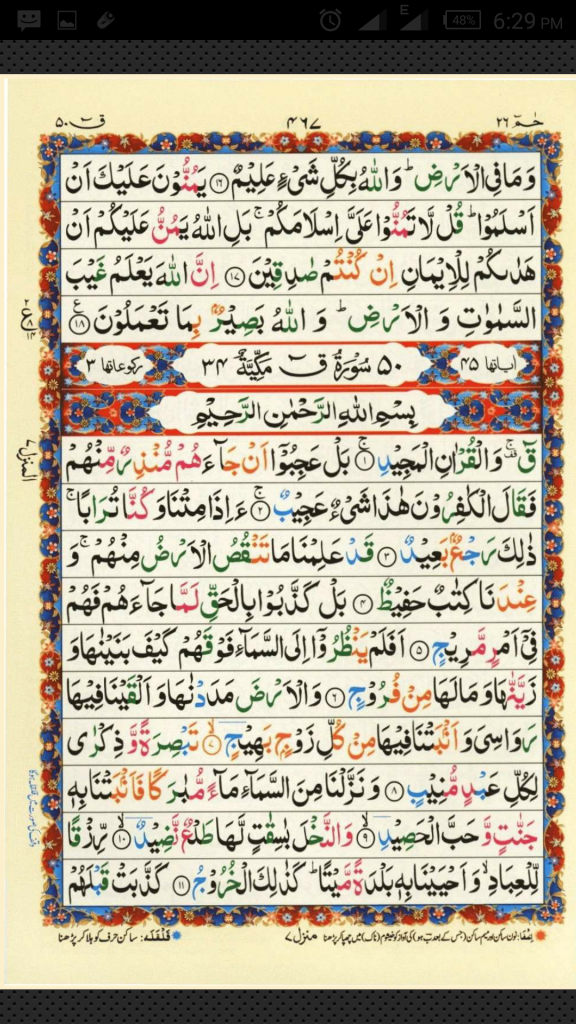 E 48% 6:29 PM
حٰمٓ ٢٦ ٤٦٧ قٓ ٥٠
وَمَا فِی الْاَرْضِ ؕ وَاللّٰهُ بِكُلِّ شَیْءٍ عَلِیْمٌ ﴿١٦﴾ یَمُنُّوْنَ عَلَیْكَ اَنْ
اَسْلَمُوْا ؕ قُلْ لَّا تَمُنُّوْا عَلَیَّ اِسْلَامَكُمْ ۚ بَلِ اللّٰهُ یَمُنُّ عَلَیْكُمْ اَنْ
هَدٰىكُمْ لِلْاِیْمَانِ اِنْ كُنْتُمْ صٰدِقِیْنَ ﴿١٧﴾ اِنَّ اللّٰهَ یَعْلَمُ غَیْبَ
السَّمٰوٰتِ وَ الْاَرْضِ ؕ وَ اللّٰهُ بَصِیْرٌۢ بِمَا تَعْمَلُوْنَ ﴿١٨﴾
اٰیاتها ٤٥ ٥٠ سُوْرَةُ قٓ مَكِّیَّةٌ ٣٤ ركوعاتها ٣
بِسْمِ اللّٰهِ الرَّحْمٰنِ الرَّحِیْمِ
قٓ ۫ وَ الْقُرْاٰنِ الْمَجِیْدِ ﴿١﴾ بَلْ عَجِبُوْۤا اَنْ جَآءَهُمْ مُّنْذِرٌ مِّنْهُمْ
فَقَالَ الْكٰفِرُوْنَ هٰذَا شَیْءٌ عَجِیْبٌ ﴿٢﴾ ءَاِذَا مِتْنَا وَ كُنَّا تُرَابًا ۚ
ذٰلِكَ رَجْعٌۢ بَعِیْدٌ ﴿٣﴾ قَدْ عَلِمْنَا مَا تَنْقُصُ الْاَرْضُ مِنْهُمْ ۚ وَ
عِنْدَنَا كِتٰبٌ حَفِیْظٌ ﴿٤﴾ بَلْ كَذَّبُوْا بِالْحَقِّ لَمَّا جَآءَهُمْ فَهُمْ
فِیْۤ اَمْرٍ مَّرِیْجٍ ﴿٥﴾ اَفَلَمْ یَنْظُرُوْۤا اِلَی السَّمَآءِ فَوْقَهُمْ كَیْفَ بَنَیْنٰهَا وَ
زَیَّنّٰهَا وَ مَا لَهَا مِنْ فُرُوْجٍ ﴿٦﴾ وَ الْاَرْضَ مَدَدْنٰهَا وَ اَلْقَیْنَا فِیْهَا
رَوَاسِیَ وَ اَنْۢبَتْنَا فِیْهَا مِنْ كُلِّ زَوْجٍۭ بَهِیْجٍ ﴿٧﴾ تَبْصِرَةً وَّ ذِكْرٰی
لِكُلِّ عَبْدٍ مُّنِیْبٍ ﴿٨﴾ وَ نَزَّلْنَا مِنَ السَّمَآءِ مَآءً مُّبٰرَكًا فَاَنْۢبَتْنَا بِهٖ
جَنّٰتٍ وَّ حَبَّ الْحَصِیْدِ ﴿٩﴾ وَ النَّخْلَ بٰسِقٰتٍ لَّهَا طَلْعٌ نَّضِیْدٌ ﴿١٠﴾ رِّزْقًا
لِّلْعِبَادِ ۙ وَ اَحْیَیْنَا بِهٖ بَلْدَةً مَّیْتًا ؕ كَذٰلِكَ الْخُرُوْجُ ﴿١١﴾ كَذَّبَتْ قَبْلَهُمْ
المنزل ٧
اِخفا: نون ساکن اور میم ساکن (جس کے بعد ب ہو) کی آواز کو خیشوم (ناک) میں چھپا کر پڑھنا منزل ٧ قَلْقَلَه: ساکن حرف کو ہلا کر پڑھنا